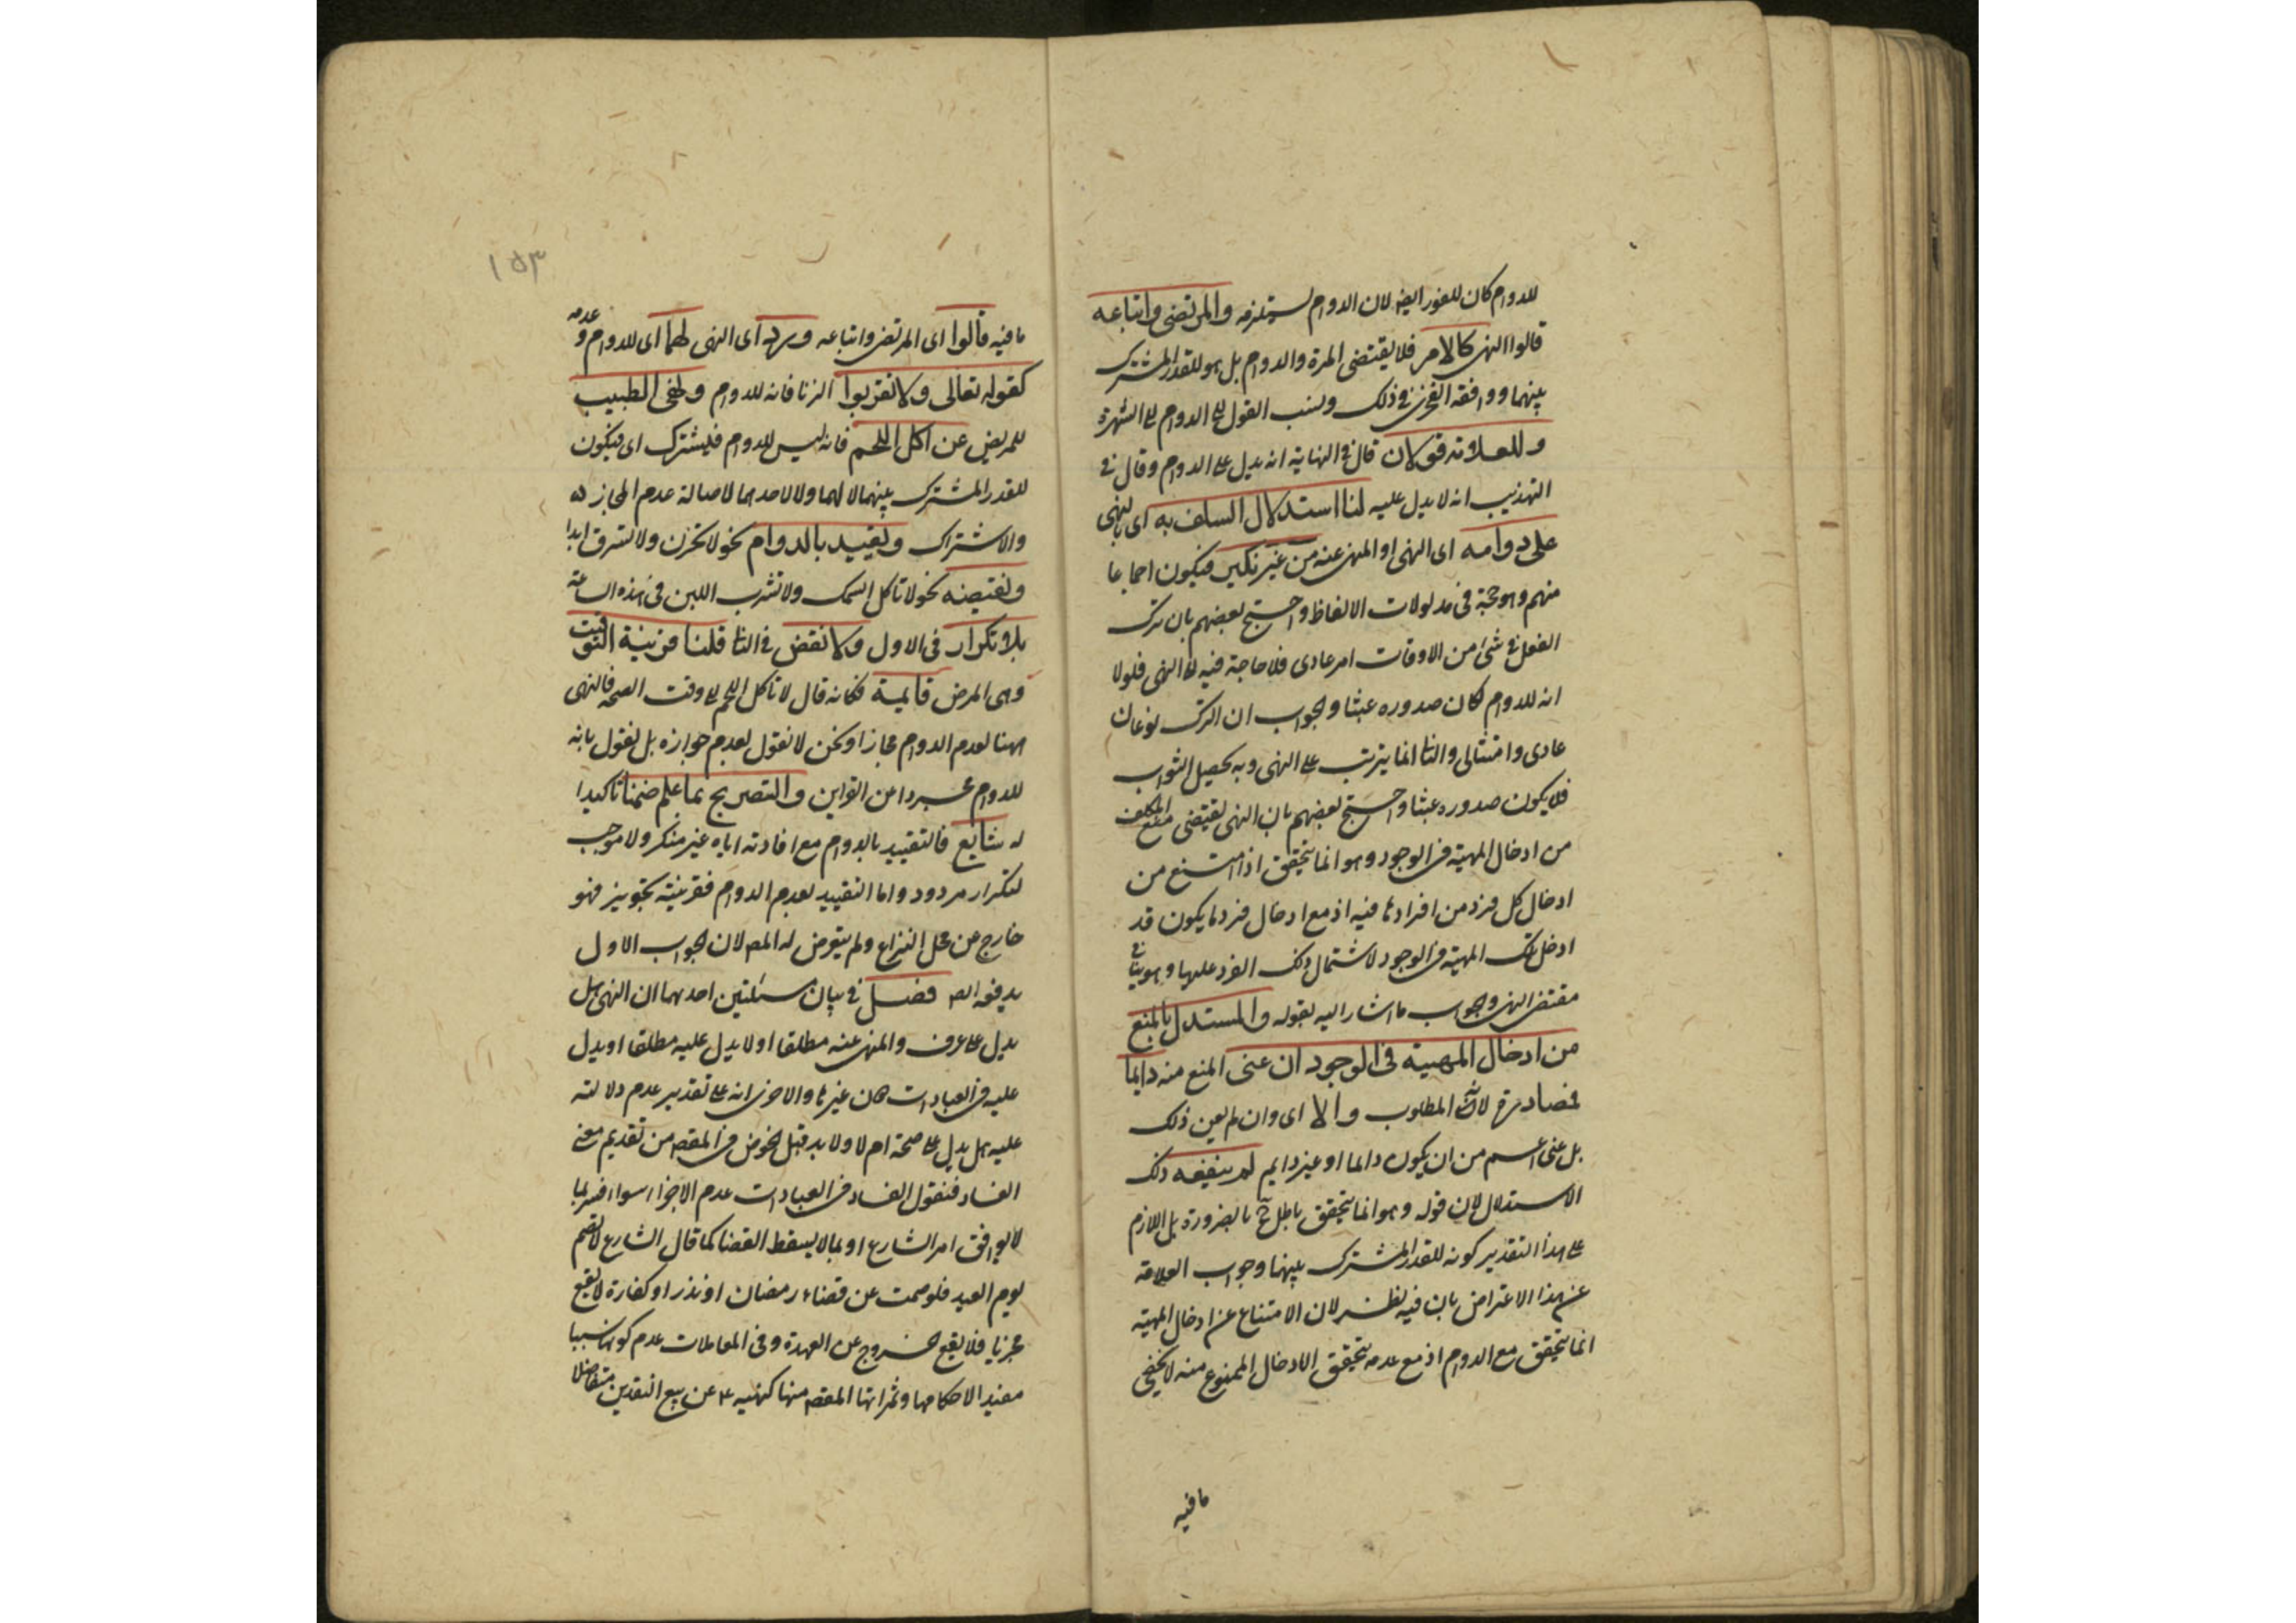 للدوام كان للفور ايضا لان الدوام يستلزمه والمرتضى واتباعه
قالوا النهى كالامر فلا يقتضى المرة والدوام بل هو للقدر المشترك
بينهما ووافقه الفخرى فى ذلك ونسب القول على الدوام الى الشهرة
وللعلامة قولان قال فى النهاية انه يدل على الدوام وقال فى
التهذيب انه لا يدل عليه لنا استدلال السلف به اى بالنهى
على دوامه اى النهى او المنهى عنه من غير نكير فيكون اجماعا
منهم وهو حجة فى مدلولات الالفاظ واحتج بعضهم بان ترك
الفعل فى شئ من الاوقات امر عادى فلا حاجة فيه الى النهى فلولا
انه للدوام لكان صدوره عبثا والجواب ان الترك نوعان
عادى وامتثالى والثا انما يترتب على النهى وبه يحصل الثواب
فلا يكون صدوره عبثا واحتج بعضهم بان النهى يقتضى منع المكلف
من ادخال المهية فى الوجود وهو انما يتحقق اذا امتنع من
ادخال كل فرد من افرادها فيه اذ مع ادخال فرد ما يكون قد
ادخل تلك المهية فى الوجود لاشتمال ذلك الفرد عليها وهو ينافى
مقتضى النهى وجواب ما اشار اليه بقوله والمستدل بالمنع
من ادخال المهية فى الوجود ان عنى المنع منه دايما
فمصادرة لانه المطلوب والا اى وان لم يعن ذلك
بل عنى اعم من ان يكون دائما او غير دايم لم ينفعه ذلك
الاستدلال لان قوله وهو انما يتحقق باطل ح بالضرورة بل اللازم
على هذا التقدير كونه للقدر المشترك بينهما وجواب العلامة
عن هذا الاعتراض بان فيه نظر لان الامتناع عن ادخال المهية
انما يتحقق مع الدوام اذ مع عدمه يتحقق الادخال الممنوع منه لا يخفى
ما فيه
١٥٣
ما فيه قالوا اى المرتضى واتباعه ورد اى النهى لهما اى للدوام وعدمه
كقوله تعالى ولا تقربوا الزنا فانه للدوام ونهى الطبيب
للمريض عن اكل اللحم فانه ليس للدوام فليشترك اى فيكون
للقدر المشترك بينهما لا لهما ولا لاحدهما لاصالة عدم المجاز
والاشتراك وتقييد بالدوام نحو لا تحزن ولا تسرق ابدا
ونقيضه نحو لا تاكل السمك ولا تشرب اللبن فى هذه الساعة
بلا تكرار فى الاول ولا نقض فى الثا قلنا قرينة التوقيت
وهى المرض قايمة فكانه قال لا تاكل اللحم الى وقت الصحة فالنهى
ههنا لعدم الدوام مجازا ونحن لا نقول بعدم جوازه بل نقول بانه
للدوام مجردا عن القراين والتصريح بما علم ضمنا تاكيدا
له شايع فالتقييد بالدوام مع افادته اياه غير منكر ولا موجب
لتكرار مردود واما التقييد بعدم الدوام فقرينة تجويز فهو
خارج عن محل النزاع ولم يتعرض له المص لان الجواب الاول
يدفعه ايضا فصل فى بيان مسئلتين احدهما ان النهى هل
يدل على عرف والمنهى عنه مطلقا او لا يدل عليه مطلقا او يدل
عليه فى العبادات دون غيرها والاخرى انه على تقدير عدم دلالته
عليه هل يدل على صحة ام لا ولا بد قبل الخوض فى المقصد من تقديم معنى
الفساد فنقول الفساد فى العبادات عدم الاجزا سواء فسر بما
لا يوافق امر الشارع او بما لا يسقط القضا كما قال الشارع لا تصم
يوم العيد فلو صمت عن قضاء رمضان او نذر او كفارة لا يقع
مجزيا فلا يقع الخروج عن العهدة وفى المعاملات عدم كونها سببا
مفيدا لاحكامها وثمراتها المقصودة منها كنهيه ع عن بيع النقدين متفاضلا